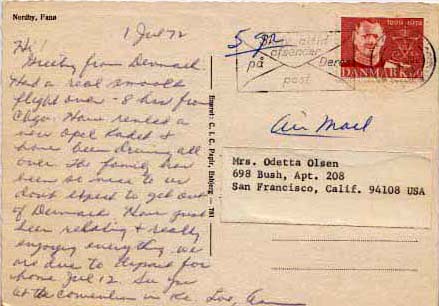 Nordby, Fanø
1 Jul 72
Hi!
Greeting from Denmark.
Had a real smooth
flight over - 8 hrs from
Chgo. Have rented a
new Opel Kadet &
have been driving all
over. The family has
been so nice to us
dont expect to get out
of Denmark. Have just
been relaxing & really
enjoying everything. We
are due to depart for
home Jul 12 See you
at the convention in
Love,
Eneret: C. I. C. Papir, Esbjerg - 781
afsender
på
post
1899 1972
DANMARK
Air Mail
Mrs. Odetta Olsen
698 Bush, Apt. 208
San Francisco, Calif. 94108 USA